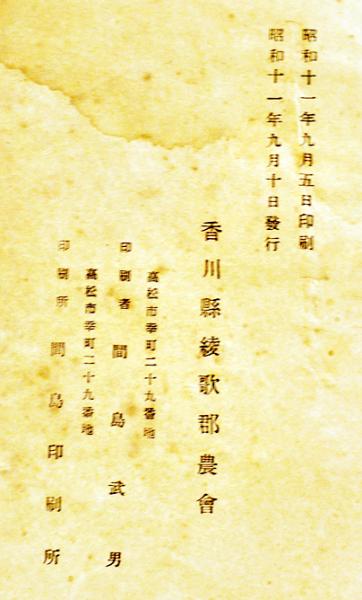 昭和十一年九月五日印刷
昭和十一年九月十日發行
香川縣綾歌郡農會
高松市幸町二十九番地
印刷者 間島武男
高松市幸町二十九番地
印刷所 間島印刷所